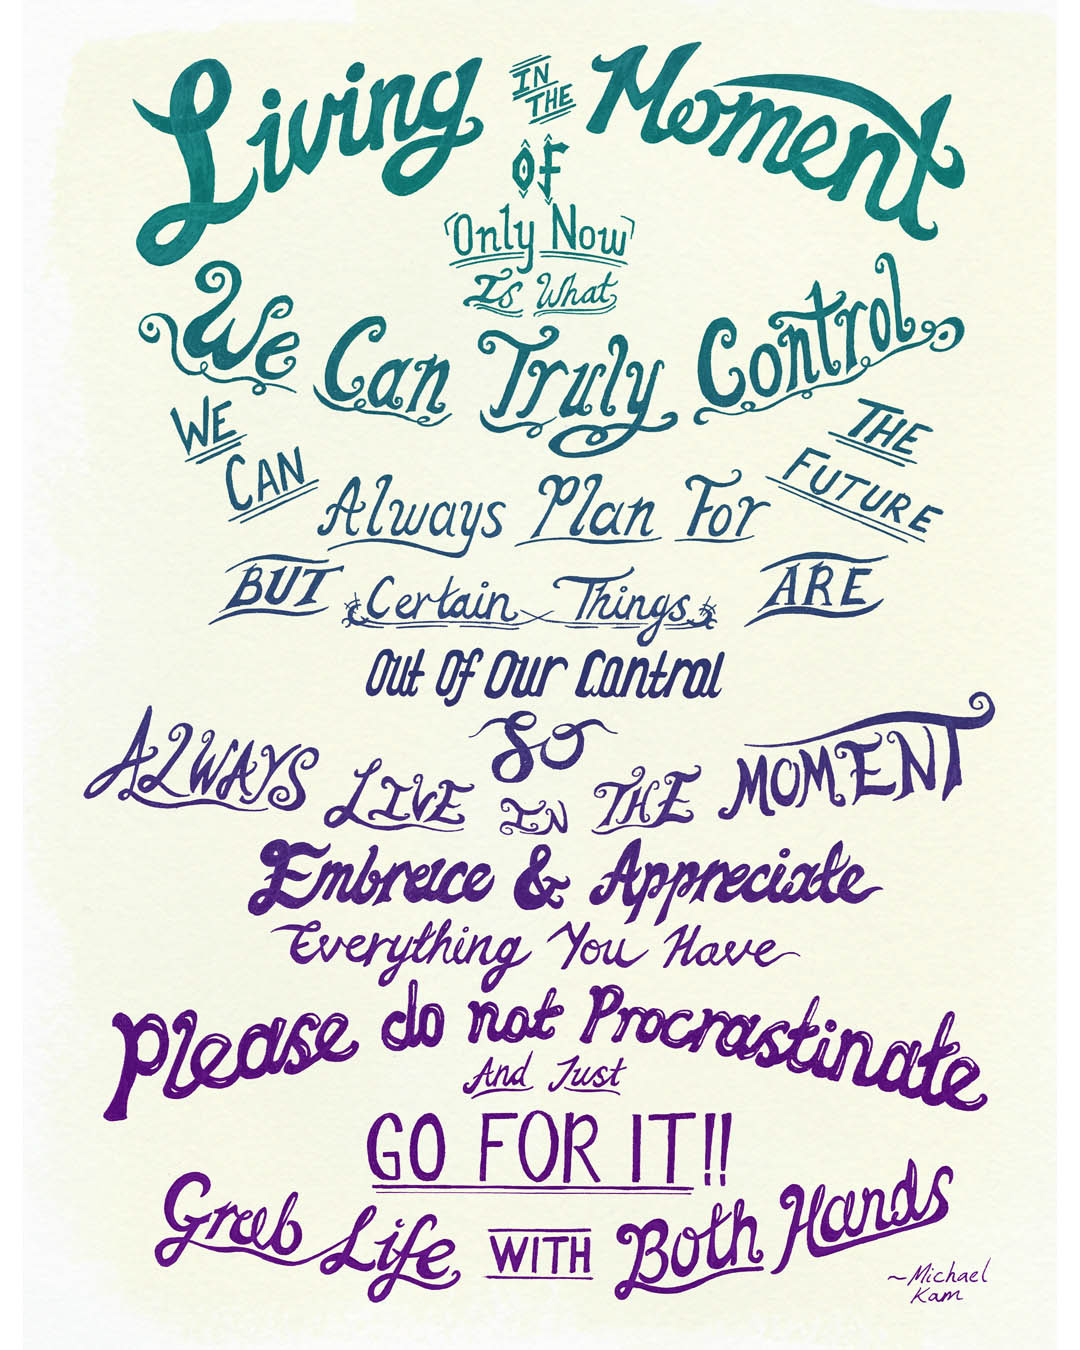 Living IN THE Moment
OF
'Only Now'
Is What
We Can Truly Control
WE CAN Always Plan For THE FUTURE
BUT Certain Things ARE
Out Of Our Control
SO
ALWAYS LIVE IN THE MOMENT
Embrace & Appreciate
Everything You Have
Please do not Procrastinate
And Just
GO FOR IT!!
Grab Life WITH Both Hands
~Michael
Kam